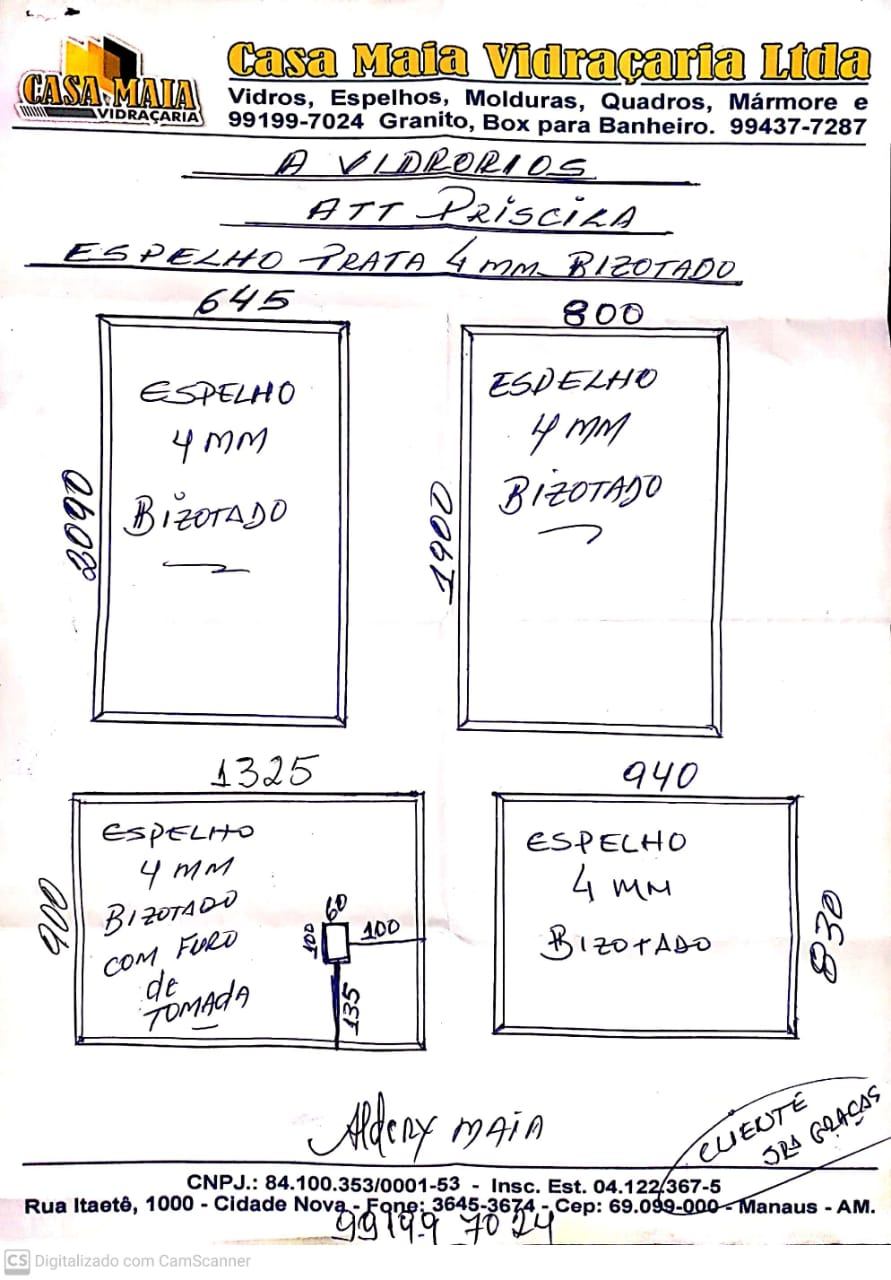 CASA MAIA
VIDRAÇARIA
Casa Maia Vidraçaria Ltda
Vidros, Espelhos, Molduras, Quadros, Mármore e
99199-7024 Granito, Box para Banheiro. 99437-7287
A VIDRORIOS
ATT PRISCILA
ESPELHO PRATA 4 MM BIZOTADO
645
ESPELHO
4 MM
BIZOTADO
2090
800
ESPELHO
4 MM
BIZOTADO
1900
1325
ESPELHO
4 MM
BIZOTADO
COM FURO
de
TOMADA
900
60
100
100
135
940
ESPELHO
4 MM
BIZOTADO
830
Aldery MAIA
CLIENTE
SRA GRAÇAS
CNPJ.: 84.100.353/0001-53 - Insc. Est. 04.122/367-5
Rua Itaetê, 1000 - Cidade Nova - Fone: 3645-3674 - Cep: 69.099-000 - Manaus - AM.
99199 7024
CS Digitalizado com CamScanner